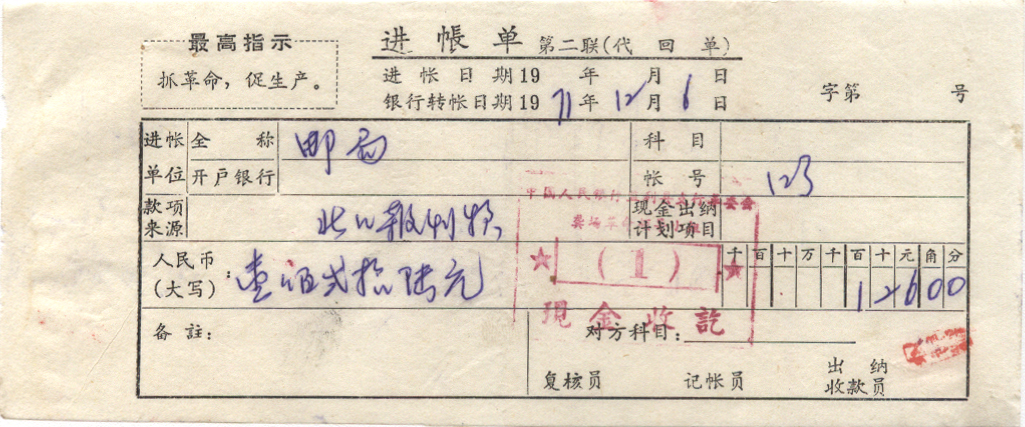 最高指示
抓革命，促生产。
进帐单 第二联(代回单)
进帐日期19 年 月 日
银行转帐日期1971年12月6日
字第 号
进帐单位 全称 邮局 科目
开户银行 帐号 123
款项来源 现金出纳计划项目
人民币(大写)： 壹佰弍拾陆元
千百十万千百十元角分
12600
中国人民银行
★ (1) ★
现金收讫
备註：
对方科目：
复核员 记帐员 出纳收款员